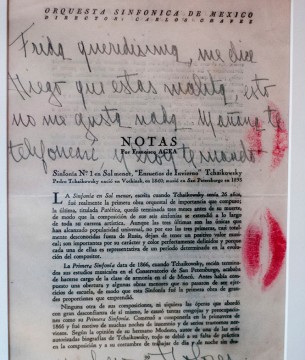 ORQUESTA SINFONICA DE MEXICO
DIRECTOR: CARLOS CHAVEZ
Frida queridisima, me dice
Diego que estas malita, esto
no me gusta nada. Mañana te
NOTAS
telefonearé, y
Por Francisco AGEA
Sinfonía Nº 1 en Sol menor, "Ensueños de Invierno" Tchaikovsky
Pedro Tchaikovsky nació en Votkinsk, en 1840; murió en San Petersburgo en 1893
LA Sinfonía en Sol menor, escrita cuando Tchaikovsky tenía 26 años,
fué realmente la primera obra orquestal de importancia que compuso;
la última, titulada Patética, quedó terminada unos meses antes de su muerte,
de modo que la composición de sus seis sinfonías se extendió a lo largo
de toda su carrera artística. Aunque las tres últimas son las únicas que
han alcanzado popularidad universal, no por eso las tres primeras, tan total-
mente desconocidas fuera de Rusia, dejan de tener un positivo valor musi-
cal; son importantes por su carácter y color perfectamente definidos y porque
cada una de ellas es representativa de un período determinado en la evolu-
ción del compositor.
La Primera Sinfonía data de 1866, cuando Tchaikovsky, recién termina-
dos sus estudios musicales en el Conservatorio de San Petersburgo, acababa
de hacerse cargo de la clase de armonía en el de Moscú. Antes había compues-
to una obertura y algunas obras menores que no pasaban de ser ejer-
cicios de escuela, de modo que esta Sinfonía fué la primera obra de gran-
des proporciones que emprendió.
Ninguna otra de sus composiciones, ni siquiera las óperas que abordó
con gran desconfianza de sí mismo, le causó tantas congojas y preocupacio-
nes como su Primera Sinfonía. Comenzó a componerla en la primavera de
1866 y fué motivo de muchas noches de insomnio y de serios trastornos ner-
viosos. Según la opinión de su hermano Modesto, autor de una de las más
autorizadas biografías de Tchaikovsky, todo se debió a su falta de práctica
en la composición y a su costumbre de trabajar de día y de noche sin des-